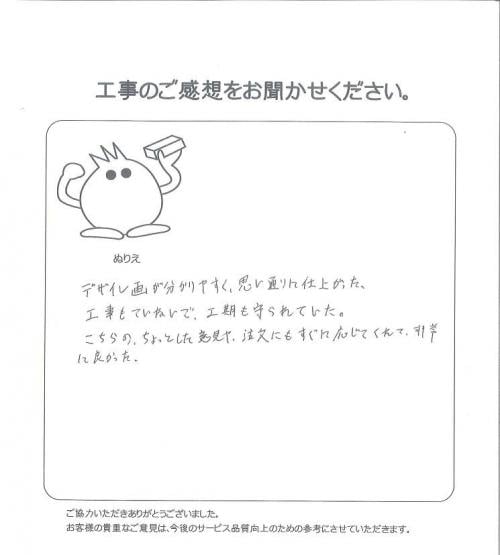 工事のご感想をお聞かせください。
ぬりえ
デザイン画が分かりやすく、思い通りに仕上がった、
工事もていねいで、工期も守られていた。
こちらの、ちょっとした意見や、注文にもすぐに応じてくれて、非常
に良かった.
ご協力いただきありがとうございました。
お客様の貴重なご意見は、今後のサービス品質向上のための参考にさせていただきます。